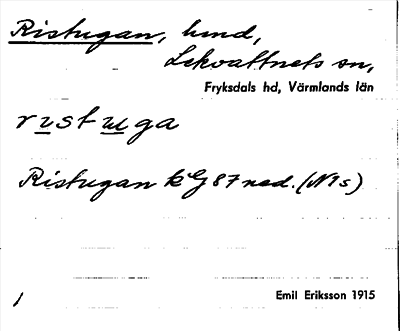 Ristugan, hmd,
Lekvattnets sn,
Fryksdals hd, Värmlands län
ristuga
Ristugan kG 87 ned. (N1s)
1
Emil Eriksson 1915